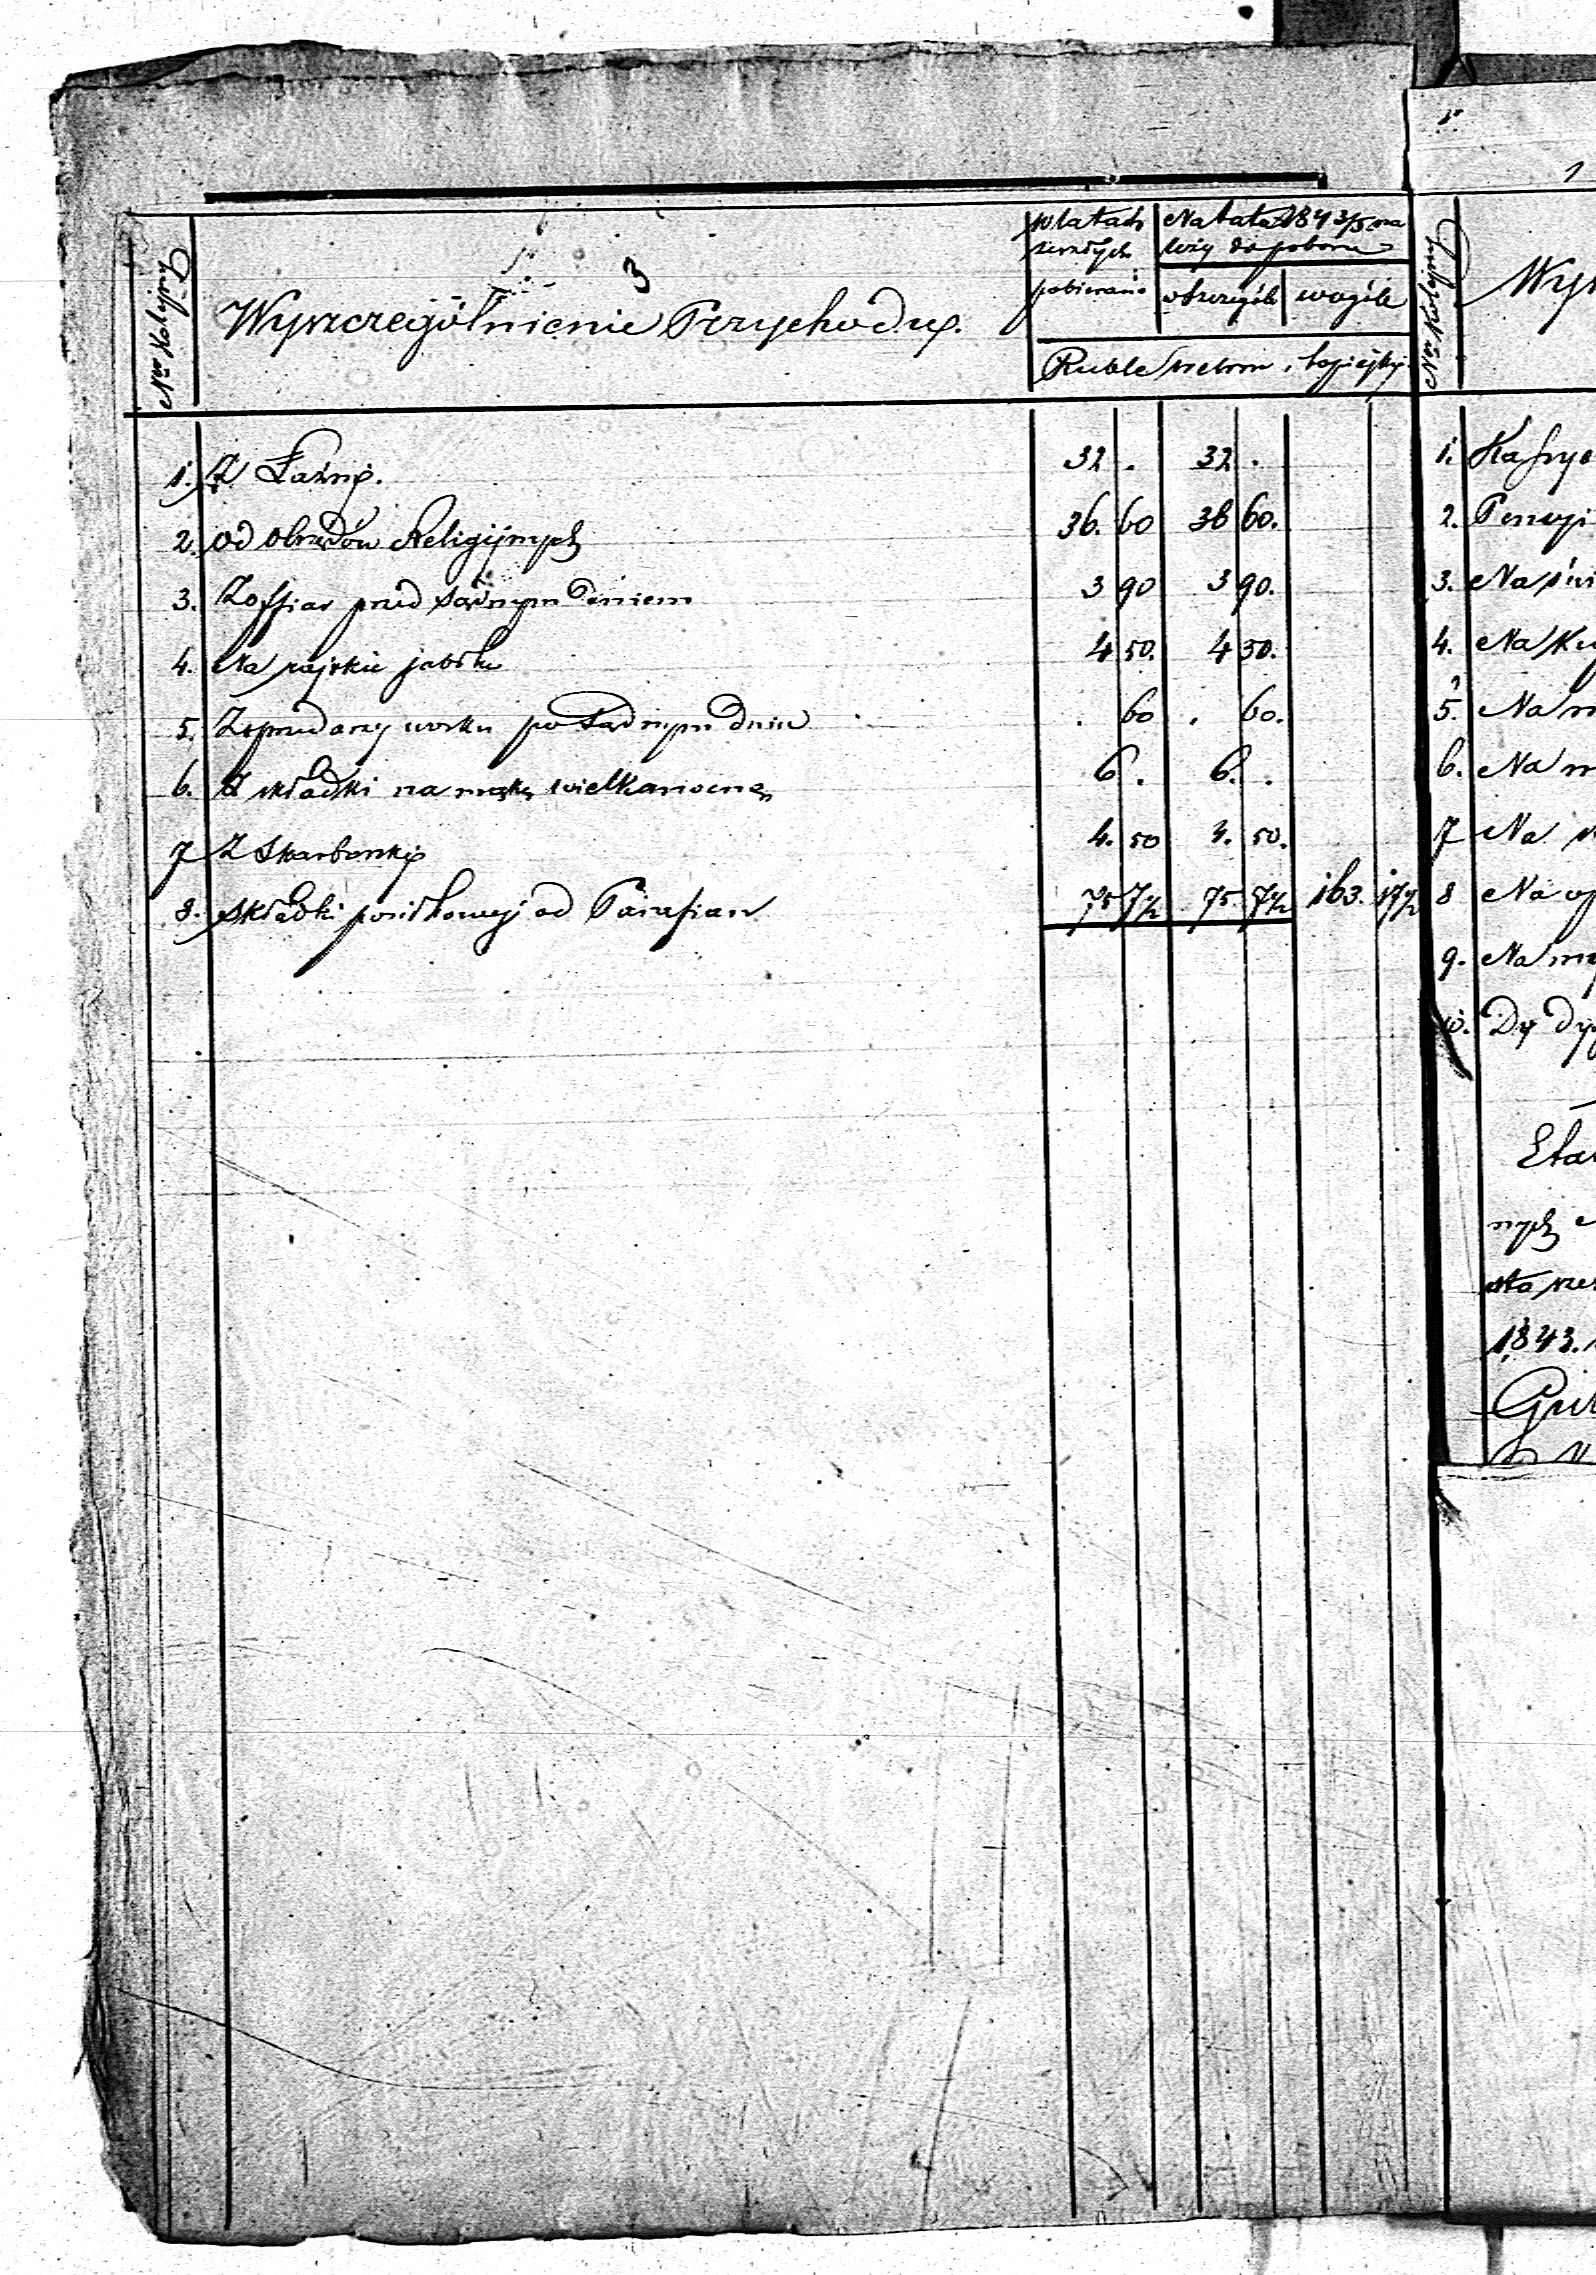 3
Nr Kolejny
Wyszczególnienie Przychodu.
w latach zeszłych pobierano
Na lata 1843/5 należy do poboru
w szczególe
w ogóle
Ruble srebrem i kopiejki
1. Z Łaźni. 32 . 32 .
2. Od obrzędów Religijnych 36. 60 36 60.
3. Z offiar przed sądnym dniem 3 90 3 90.
4. Na rajskie jabłka 4 50. 4 50.
5. Z sprzedarzy wosku po Sądnym Dniu . 60 . 60.
6. Z składki na mąkę wielkanocną 6 . 6. .
7 Z Skarbonki 4. 50 4. 50.
8. Składki posiłkowej od Parafian 75 7½ 75. 7½ 163. 17½
Nr Kolejny
1.
2.
3. Na
4. Na
5. Na
6. Na
7 Na
8 Na
9. Na
10.
1843.